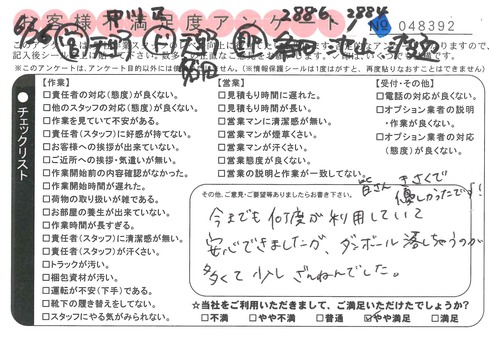 お客様不満足度アンケート
2886
2884
No 048392
※このアンケートは、アンケート目的以外には使用
(※情報保護シールは1度はがすと、再度貼りなおすことはできません)
チェックリスト
【作業】
□責任者の対応(態度)が良くない。
□他のスタッフの対応(態度)が良くない。
□作業を見ていて不安がある。
□責任者(スタッフ)に好感が持てない。
□お客様への挨拶が出来ていない。
□ご近所への挨拶・気遣いが無い。
□作業開始前の内容確認がなかった。
□作業開始時間が遅れた。
□荷物の取り扱いが雑である。
□お部屋の養生が出来ていない。
□作業時間が長すぎる。
□責任者(スタッフ)に清潔感が無い。
□責任者(スタッフ)が汗くさい。
□トラックが汚い。
□梱包資材が汚い。
□運転が不安(下手)である。
□靴下の履き替えをしてない。
□スタッフにやる気がみられない。
【営業】
□見積もり時間に遅れた。
□見積もり時間が長い。
□営業マンに清潔感が無い。
□営業マンが煙草くさい。
□営業マンが汗くさい。
□営業態度が良くない。
□営業の説明と作業が一致してない。
【受付・その他】
□電話の対応が良くない。
□オプション業者の説明
・作業が良くない。
□オプション業者の対応
(態度)が良くない。
その他、ご意見・ご要望等ありましたらお書き下さい。
皆さん きさくで
優しかったです!
今までも何度か利用していて
安心できましたが、ダンボール落しちゃうのが
多くて少しざんねんでした。
☆当社をご利用いただきまして、ご満足いただけたでしょうか?
□不満 □やや不満 □普通 ☑やや満足 □満足